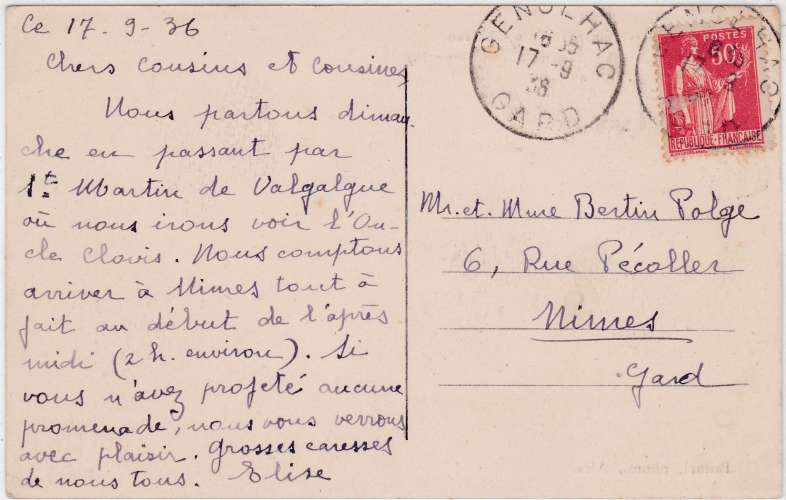 Ce 17-9-36
Chers cousins et cousines,
Nous partons diman-
che en passant par
St Martin de Valgalgue
où nous irons voir l'On-
cle Clovis. Nous comptons
arriver à Nimes tout à
fait au début de l'après
midi (2 h. environ). Si
vous n'avez projeté aucune
promenade, nous vous verrons
avec plaisir. Grosses caresses
de nous tous. Elise
GENOLHAC
17-9
36
GARD
POSTES
50c
REPUBLIQUE-FRANÇAISE
Mr. et. Mme Bertin Polge
6, Rue Pécoller
Nimes
Gard